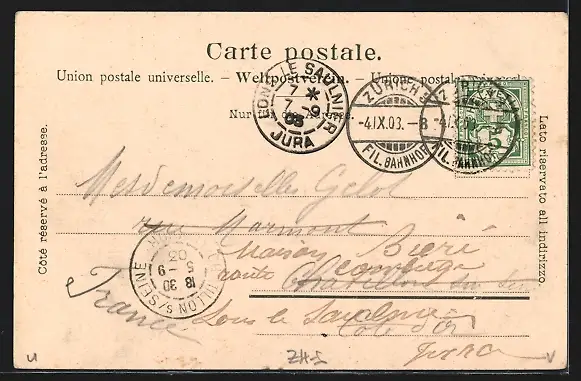 Carte postale.
Union postale universelle. – Weltpostverein. – Unione postale universale
Nur für die Adresse.
Côté réservé à l'adresse.
Lato riservato all indirizzo.
LONS LE SAULNIER
7 *
7 -9
03
JURA
ZÜRICH
-4.IX.03.-8
FIL. BAHNHOF
ZÜRICH
-4.IX.03
FIL. BAHNHOF
CHATILLON S/SEINE
18 30
5 -9
03
Mesdemoiselles
rue Marmont
Maison
route
Chatillon sur Seine
France
Lons le Saulnier
Côte d'Or
Jura